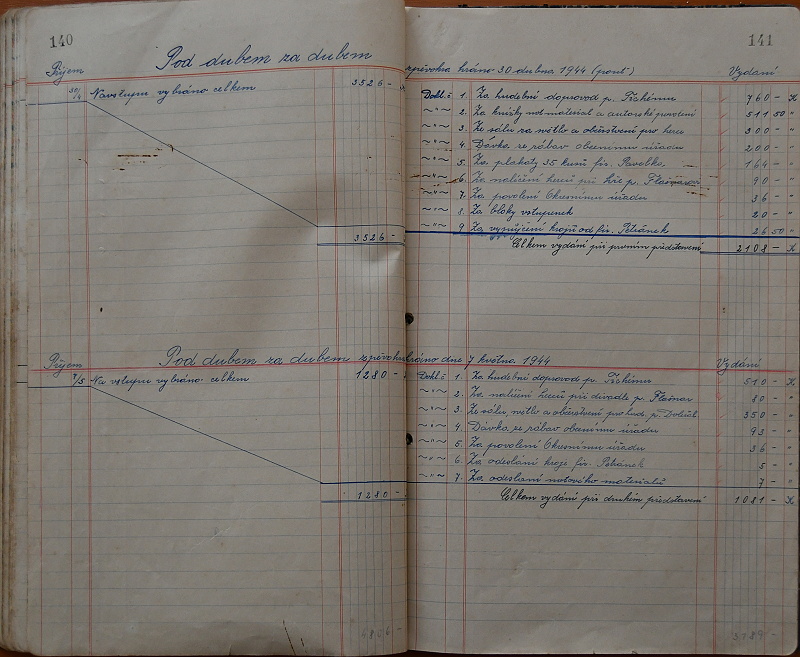 140
Pod dubem za dubem
Příjem
30/4 Na vstupu vybráno celkem 3526 -
3526 -
141
zpěvohra hráno 30 dubna 1944 (pout) Vydání
Dokl. č 1. Za hudební doprovod p. Tichému 760 - K
~"~ 2. Za knížky not. material a autorské povolení 511 50 "
~"~ 3. Ze sálu za světlo a občerstvení pro herce 300 - "
~"~ 4. Dávka ze zábav obecnímu úřadu 200 - "
~"~ 5. Za plakáty 35 kusů fir. Pavelka 164 - "
~"~ 6. Za nalíčení herců při hře p. 90 - "
~"~ 7. Za povolení Okresnímu úřadu 36 - "
~"~ 8. Za bloky vstupenek 20 - "
~"~ 9 Za vypůjčení krojů od fir. Petránek 26 50 "
Celkem vydání při prvním představení 2108 - K
Příjem
Pod dubem za dubem zpěvohra hráno dne 7 května 1944 Vydání
7/5 Na vstupu vybráno celkem 1280 -
1280 -
Dokl. č 1. Za hudební doprovod p. Tichému 510 - K
~"~ 2. Za nalíčení herců při divadle p. 80 - "
~"~ 3. Ze sálu, světlo a občerstvení pro hud. p. 350 - "
~"~ 4. Dávka ze zábav obecnímu úřadu 93 - "
~"~ 5. Za povolení Okresnímu úřadu 36 - "
~"~ 6. Za odeslání kroje fir. Petránek 5 - "
~"~ 7. Za odeslání notového materialů 7 - "
Celkem vydání při druhém představení 1081 - K
4806 -
3189 -